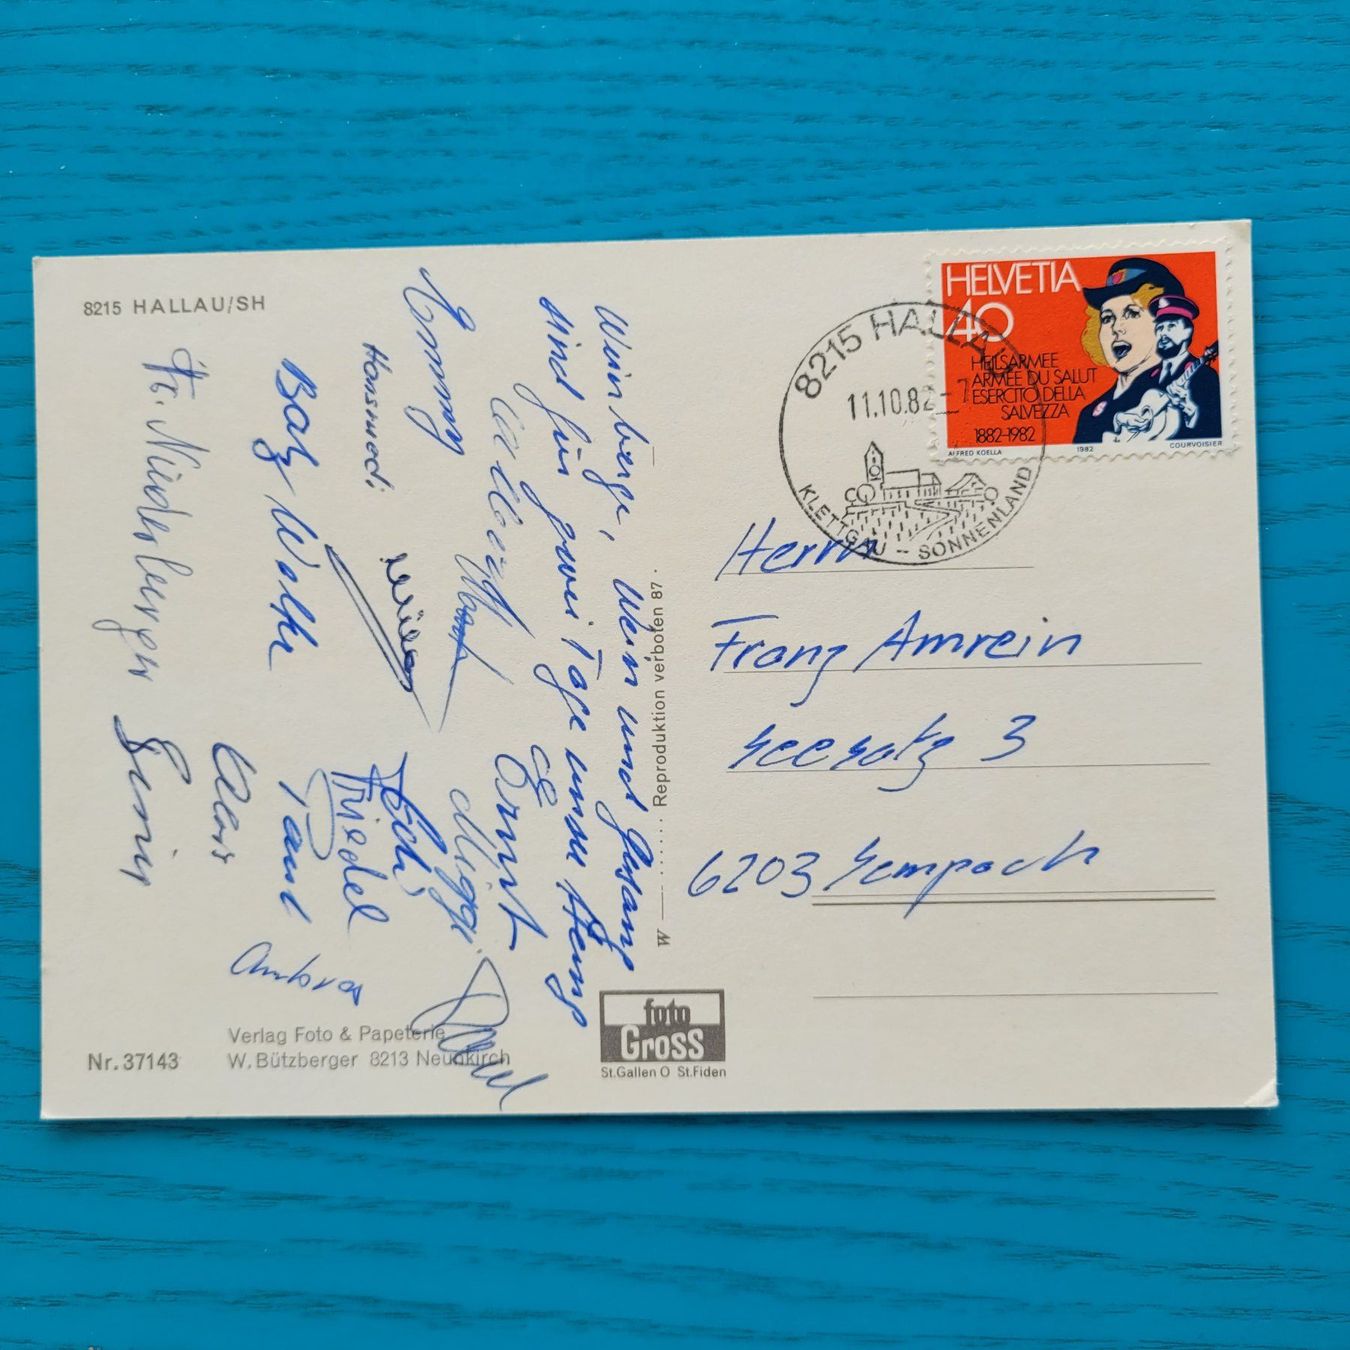 8215 HALLAU/SH
HELVETIA
40
HEILSARMEE
ARMÉE DU SALUT
ESERCITO DELLA
SALVEZZA
1882-1982
ALFRED KOELLA 1982 COURVOISIER
8215 HALLAU
11.10.82-7
KLETTGAU - SONNENLAND
Weinberge, Wein und Gesang
sind für zwei Tage unser
Ernst
Conny
Miggi
Hansruedi
Friedel
Balz Wolke
Paul
Ambros
Fr. Niederberger
Reproduktion verboten 87.
Herrn
Franz Amrein
Seesatz 3
6203 Sempach
Nr. 37143
Verlag Foto & Papeterie
W. Bützberger 8213 Neunkirch
foto
Gross
St.Gallen O St.Fiden